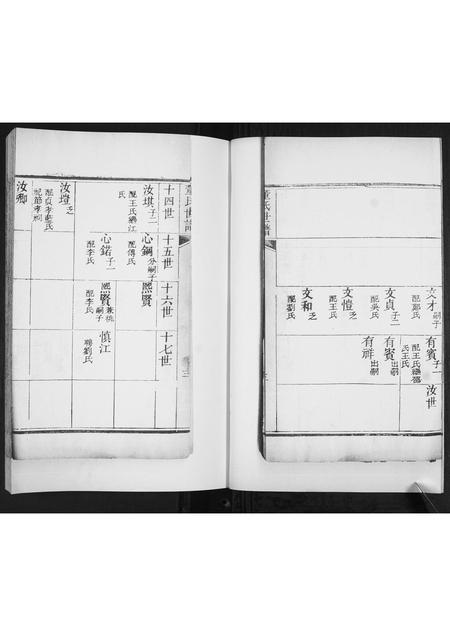 董氏世譜
文才 嗣子
配郭氏
文貞 子二
配吳氏
文愷 乏
配王氏
文和 乏
配劉氏
有賓 子一
配王氏繼郤
氏王氏
有賓 出嗣
有祥 出嗣
汝世
董氏世譜
三
十四世
十五世
十六世
十七世
汝琪 子二
配王氏繼江
氏
心鋼 分嗣子
配傅氏
熙賢
心鍩 子一
配李氏
熙賢 兼桃嗣子
配李氏
慎江
聘劉氏
汝瑄 乏
配貞孝藍氏
配節孝祠
汝卿